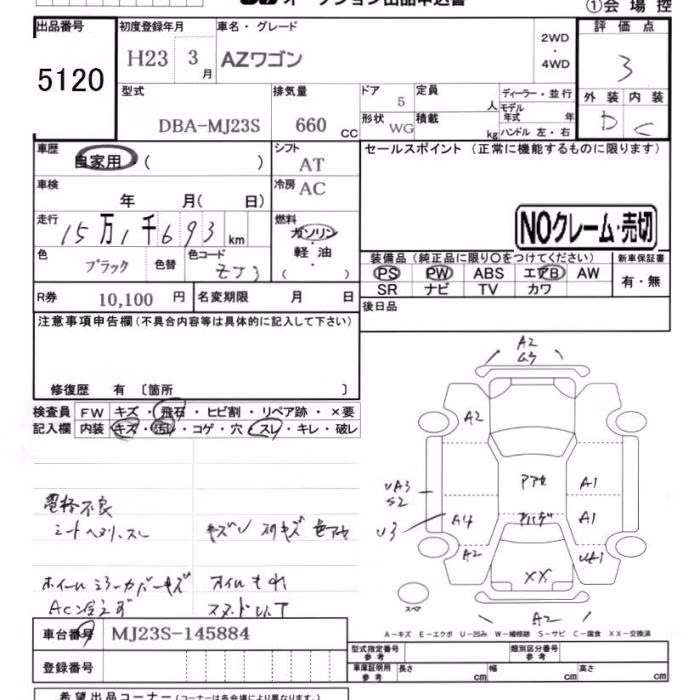 オークション出品申込書
①会場控
出品番号 初度登録年月 車名・グレード 2WD・4WD 評価点
5120 H23 3月 AZワゴン 3
型式 排気量 ドア 定員 ディーラー・並行 外装 内装
DBA-MJ23S 660cc 5 人 モデル年式 年 D C
形状 WG 積載 kg ハンドル 左・右
車歴 自家用 ( ) シフト AT セールスポイント (正常に機能するものに限ります)
車検 年 月( 日) 冷房 AC
走行 15万1千693km 燃料 ガソリン 軽油 ( )
NOクレーム・売切
色 ブラック 色替 色コード ZJ3
装備品 (純正品に限り○をつけてください) 新車保証書
PS PW ABS エアB AW 有・無
SR ナビ TV カワ
R券 10,100円 名変期限 月 日 後日品
注意事項申告欄 (不具合内容等は具体的に記入して下さい)
修復歴 有 〔箇所 〕
検査員 FW キズ・飛石・ヒビ割・リペア跡・×要
記入欄 内装 キズ・汚レ・コゲ・穴・スレ・キレ・破レ
A2
A2
A1
UA3
S2
U3
A4
A1
A2
UA1
XX
スペア
A2
電格不良
シートヘタリ、スレ
ホイールミラーカバーキズ オイルもれ
AC冷えず
A-キズ E-エクボ U-凹み W-補修跡 S-サビ C-腐食 XX-交換済
車台番号 MJ23S-145884
型式指定番号 参考 類別区分番号 参考
登録番号
車庫証明用 参考 長さ cm 幅 cm 高さ cm
希望出品コーナー (コーナーは各会場により異なります)